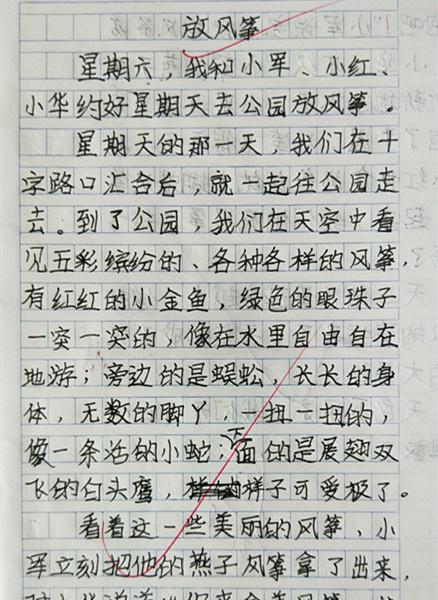 放风筝
星期六，我和小军、小红、
小华约好星期天去公园放风筝。
星期天的那一天，我们在十
字路口汇合后，就一起往公园走
去。到了公园，我们在天空中看
见五彩缤纷的、各种各样的风筝，
有红红的小金鱼，绿色的眼珠子
一突一突的，像在水里自由自在
地游；旁边的是蜈蚣，长长的身
体，无数的脚丫，一扭一扭的，
像一条活的小蛇；下面的是展翅双
飞的白头鹰，样子可爱极了。
看着这一些美丽的风筝，小
军立刻把他的燕子风筝拿了出来，